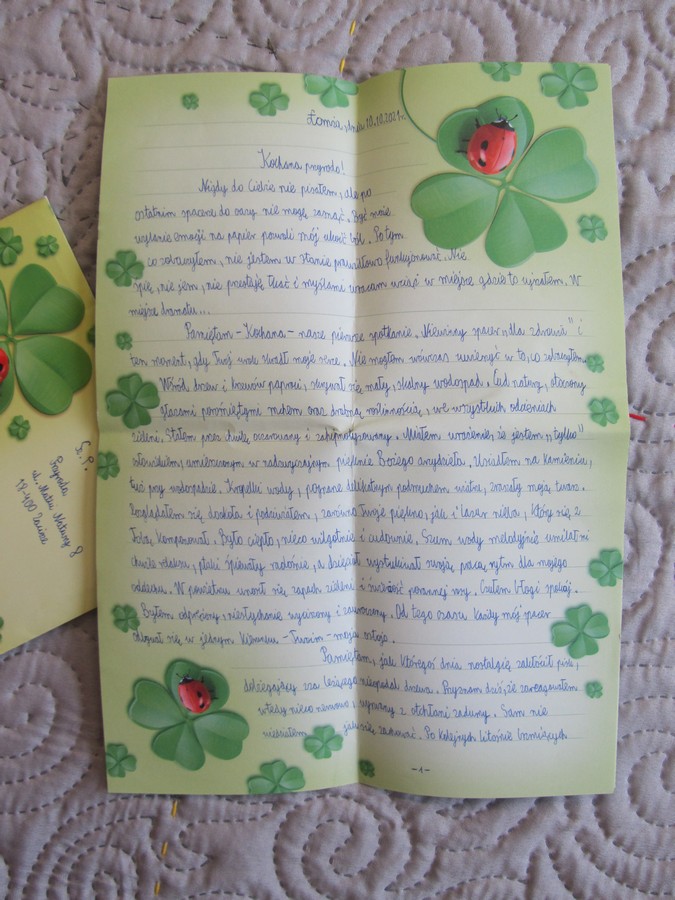 Łomża, dnia 10.10.2021r.
Kochana przyrodo!
Nigdy do Ciebie nie pisałem, ale po
ostatnim spacerze do oazy nie mogę zasnąć. Być może
wylanie emocji na papier pozwoli mój ukoić ból. Po tym
co zobaczyłem, nie jestem w stanie prawidłowo funkcjonować. Nie
śpię, nie jem, nie przestaję łkać i myślami wracam wciąż w miejsce gdzie to ujrzałem. W
miejsce dramatu...
Pamiętam - Kochana - nasze pierwsze spotkanie. Niewinny spacer „dla zdrowia" i
ten moment, gdy Twój urok skradł moje serce. Nie mogłem wówczas uwierzyć w to, co zobaczyłem.
Wśród drzew i krzewów paproci, skrywał się mały, skalny wodospad. Cud natury, otoczony
głazami porośniętymi mchem oraz drobną roślinnością, we wszystkich odcieniach
zieleni. Stałem przez chwilę oczarowany i zahipnotyzowany. Miałem wrażenie, że jestem „tylko"
człowiekiem, umieszczonym w nadzwyczajnym pięknie Bożego arcydzieła. Usiadłem na kamieniu,
tuż przy wodospadzie. Kropelki wody, pognane delikatnym podmuchem wiatru, zraszały moją twarz.
Rozglądałem się dookoła i podziwiałem, zarówno Twoje piękno, jak i lazur nieba, który się z
Tobą komponował. Było ciepło, nieco wilgotnie i cudownie. Szum wody melodyjnie umilał mi
chwile relaksu, ptaki śpiewały radośnie, a dzięcioł wystukiwał swoją pracą rytm dla mojego
oddechu. W powietrzu unosił się zapach zieleni i świeżość porannej rosy. Czułem błogi spokój.
Byłem odprężony, niesłychanie wyciszony i zauroczony. Od tego czasu każdy mój spacer
odbywał się w jednym kierunku - Twoim - moja ostojo.
Pamiętam, jak któregoś dnia nostalgię zakłócił pisk,
dobiegający zza leżącego nieopodal drzewa. Przyznam dziś, że zareagowałem
wtedy nieco nerwowo, wyrwany z otchłani zadumy. Sam nie
wiedziałem jak się zachować. Po kolejnych litośnie brzmiących
-1-
Sz. P.
Przyroda
ul. Matki Natury 8
18-400 Łomża